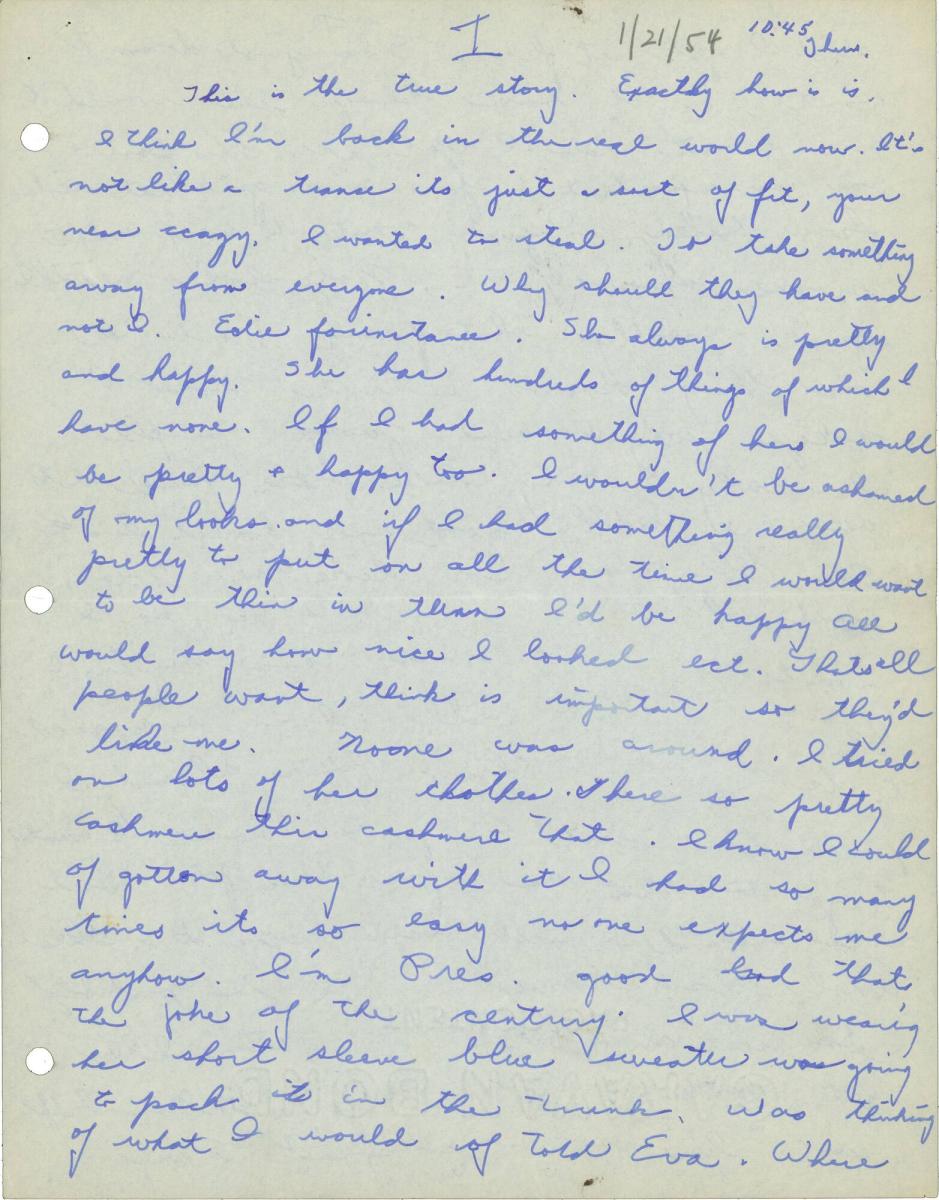 I 1/21/54 10:45 Thurs.
This is the true story. Exactly how is is.
I think I'm back in the real world now. It's
not like a transe its just a sort of fit, your
near crazy. I wanted to steal. To take something
away from everyone. Why should they have and
not I. Edie forinstance. She always is pretty
and happy. She has hundreds of things of which I
have none. If I had something of hers I would
be pretty & happy too. I wouldn't be ashamed
of my looks. and if I had something really
pretty to put on all the time I would want
to be thin in them I'd be happy All
would say how nice I looked ect. Thats all
people want, think is important so they'd
like me. Noone was around. I tried
on lots of her clothes. There so pretty
cashmere this cashmere that. I know I could
of gotton away with it I had so many
times its so easy no one expects me
anyhow. I'm Pres. good God that
the joke of the century. I was wearig
her short sleeve blue sweater was going
to pack it in the trunk. Was thinking
of what I would of told Eva. Where